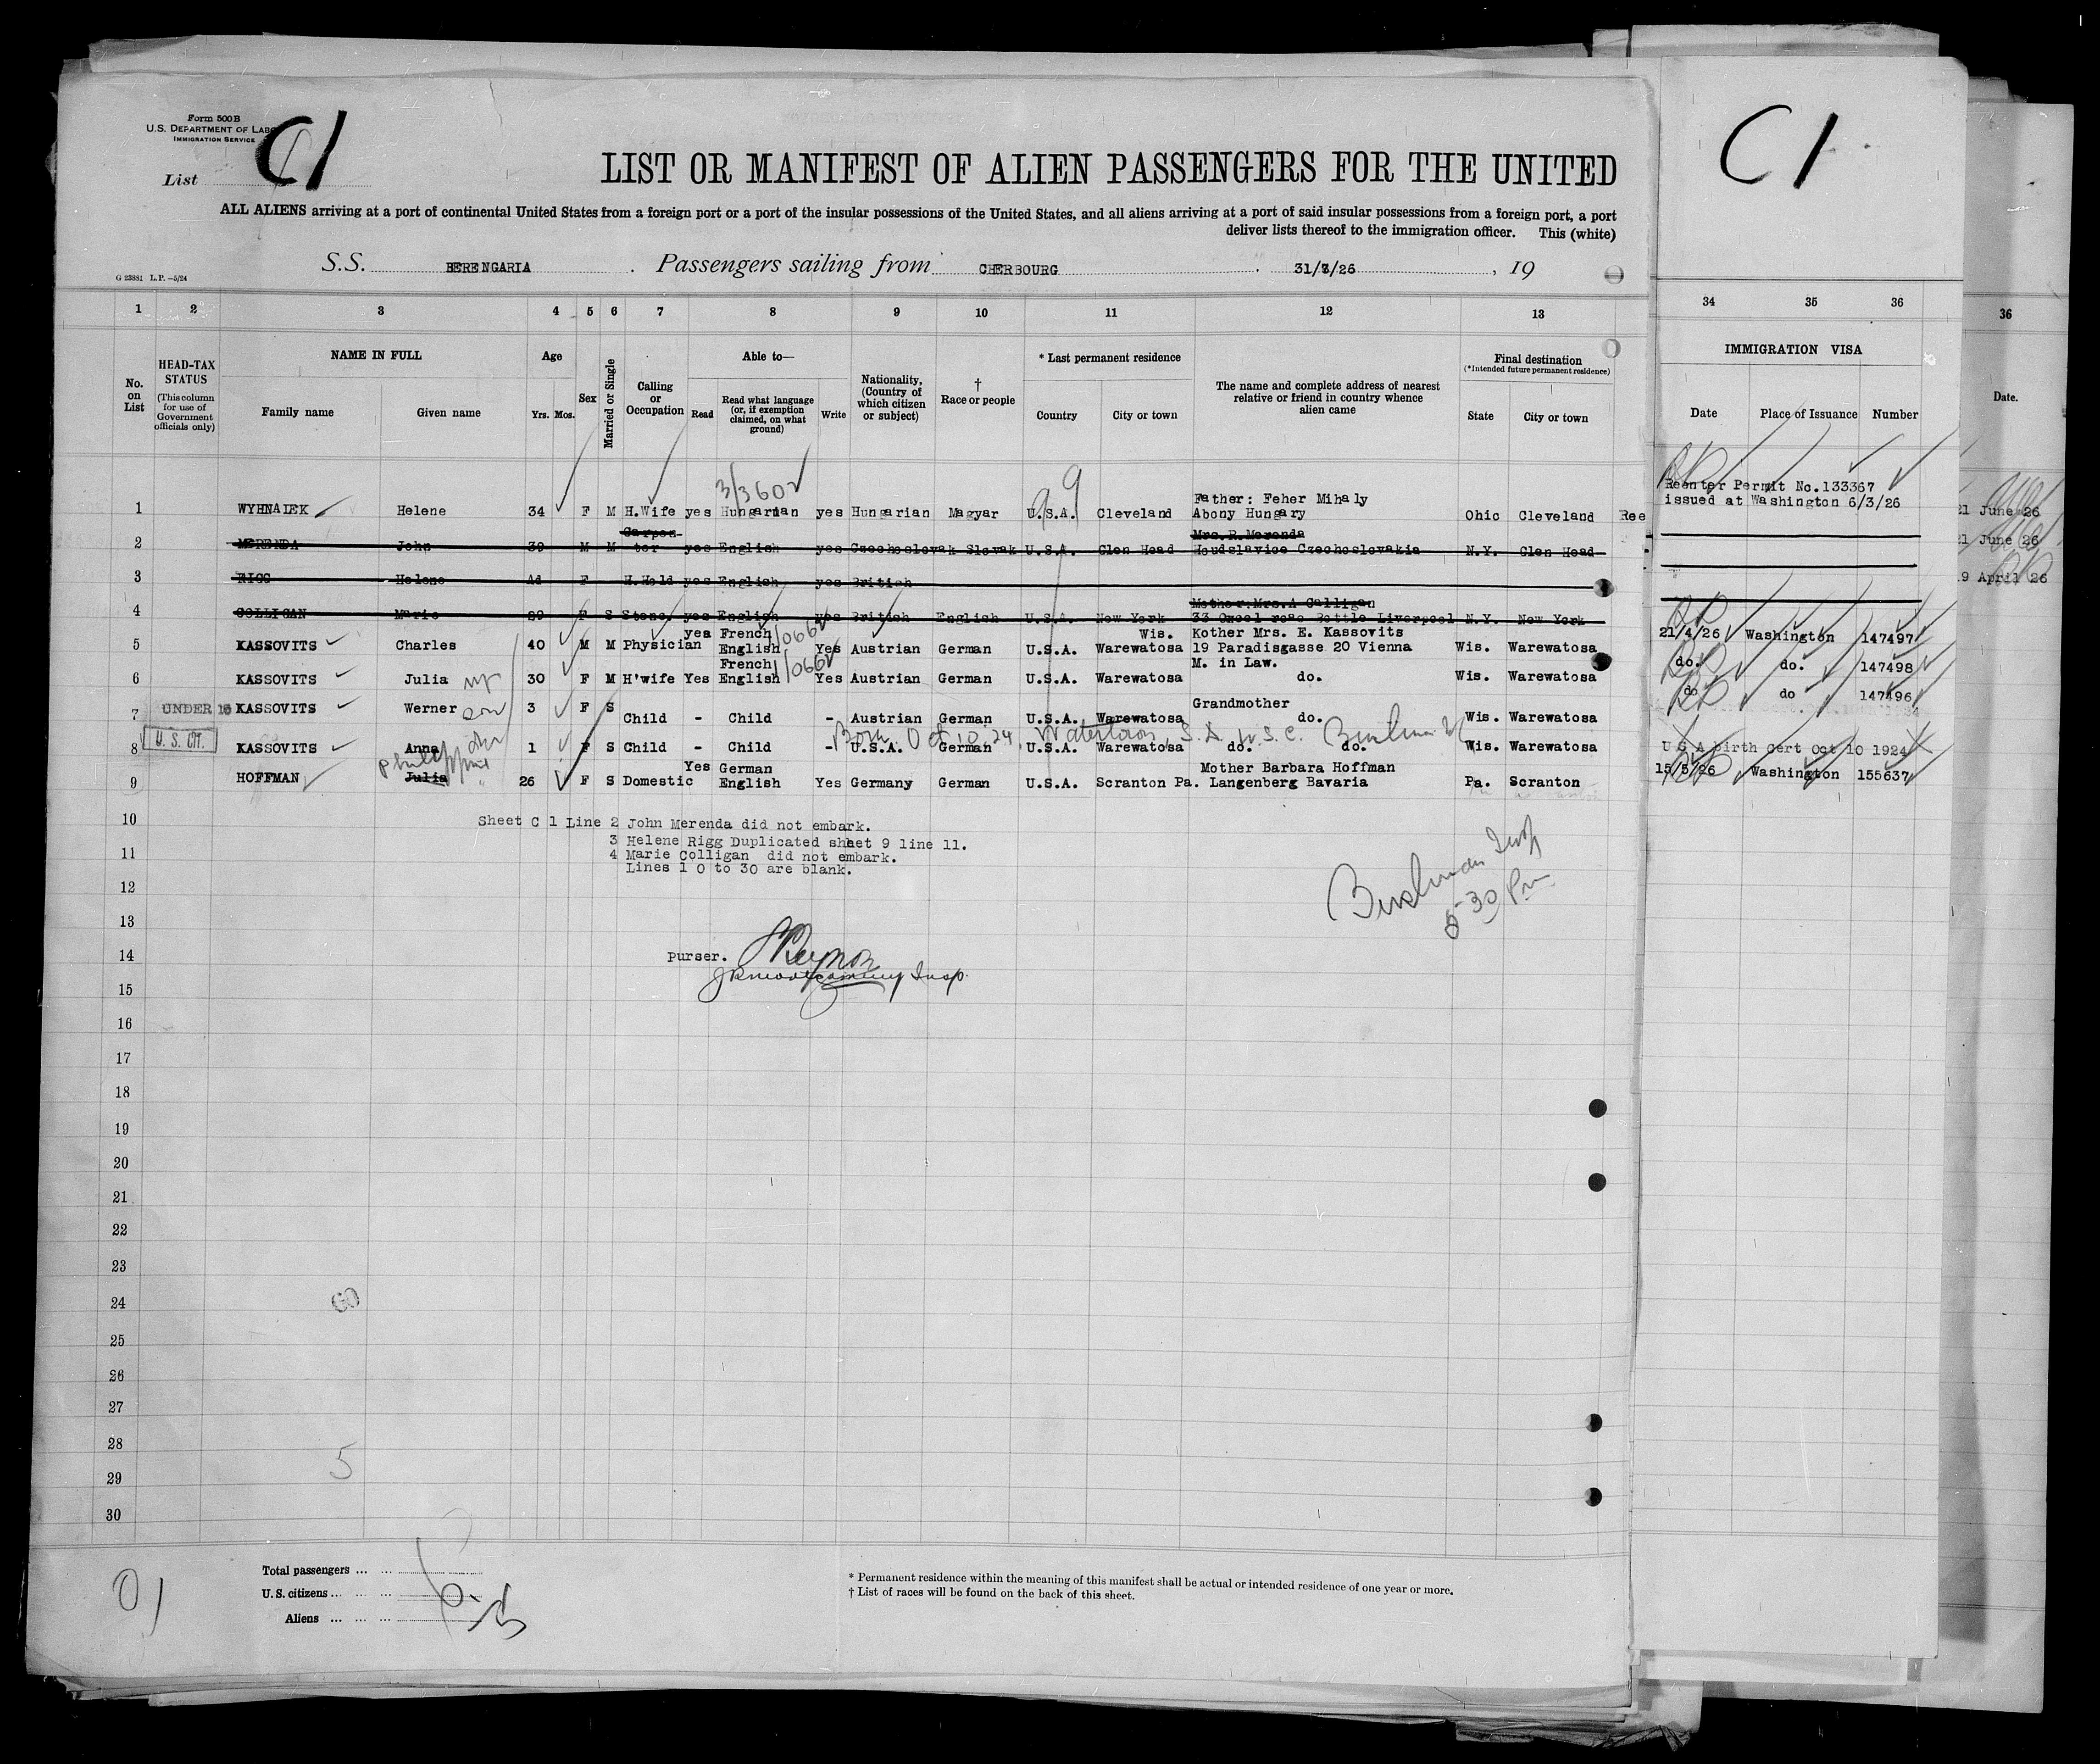 Form 500B
U.S. DEPARTMENT OF LABO
IMMIGRATION SERVICE
List C1
C1
LIST OR MANIFEST OF ALIEN PASSENGERS FOR THE UNITED
ALL ALIENS arriving at a port of continental United States from a foreign port or a port of the insular possessions of the United States, and all aliens arriving at a port of said insular possessions from a foreign port, a port
deliver lists thereof to the immigration officer. This (white)
S.S. BERENGARIA. Passengers sailing from CHERBOURG. 31/7/26, 19
G 23881 L.P.—5/24
1 2 3 4 5 6 7 8 9 10 11 12 13 34 35 36 36
No. on List
HEAD-TAX STATUS
(This column for use of Government officials only)
NAME IN FULL
Family name Given name
Age
Yrs. Mos.
Sex
Married or Single
Calling or Occupation
Able to—
Read
Read what language (or, if exemption claimed, on what ground)
Write
Nationality, (Country of which citizen or subject)
† Race or people
* Last permanent residence
Country City or town
The name and complete address of nearest relative or friend in country whence alien came
Final destination
(*Intended future permanent residence)
State City or town
IMMIGRATION VISA
Date Place of Issuance Number
Date.
3/3602
99
Father: Feher Mihaly
1 WYHNALEK Helene 34 F M H.Wife yes Hungarian yes Hungarian Magyar U.S.A. Cleveland Abony Hungary Ohio Cleveland Ree
Reenter Permit No.133367
issued at Washington 6/3/26
21 June 26
Carpen- Mrs.R.Merenda
2 MERENDA John 39 M M ter yes English yes Czechoslovak Slovak U.S.A. Glen Head Houdslavice Czechoslovakia N.Y. Glen Head
21 June 26
3 RIGG Helene Ad F H.Hold yes English yes British
19 April 26
Mother:Mrs.A Colligan
4 COLLIGAN Marie 29 F S Steno yes English yes British English U.S.A. New York Liverpool N.Y. New York
yes French 1/0662 Wis. Kother Mrs. E. Kassovits
5 KASSOVITS Charles 40 M M Physician English Yes Austrian German U.S.A. Warewatosa 19 Paradisgasse 20 Vienna Wis. Warewatosa 21/4/26 Washington 147497
French 1/0662 M. in Law.
6 KASSOVITS Julia 30 F M H'wife Yes English Yes Austrian German U.S.A. Warewatosa do. Wis. Warewatosa do. do. 147498
Grandmother
7 UNDER 16 KASSOVITS Werner son 3 F S Child - Child - Austrian German U.S.A. Warewatosa do. Wis. Warewatosa do do 147496
U. S. CIT.
Born Oct 10, 24, Watertown, S.D. U.S.C.
8 KASSOVITS Anna 1 F S Child - Child - U.S.A. German U.S.A. Warewatosa do. do. Wis. Warewatosa U S A birth cert Oct 10 1924
Yes German Mother Barbara Hoffman
9 HOFFMAN Julia 26 F S Domestic English Yes Germany German U.S.A. Scranton Pa. Langenberg Bavaria Pa. Scranton 15/5/26 Washington 155637
10
Sheet C 1 Line 2 John Merenda did not embark.
3 Helene Rigg Duplicated sheet 9 line 11.
11
4 Marie Colligan did not embark.
Lines 1 0 to 30 are blank.
12
13
Insp
8 30 Pm
14
Purser.
Insp.
15
16
17
18
19
20
21
22
23
24
60
25
26
27
28
29
5
30
01
Total passengers ... ... 6
U.S. citizens ... ...
Aliens ... ... ... 5
* Permanent residence within the meaning of this manifest shall be actual or intended residence of one year or more.
† List of races will be found on the back of this sheet.